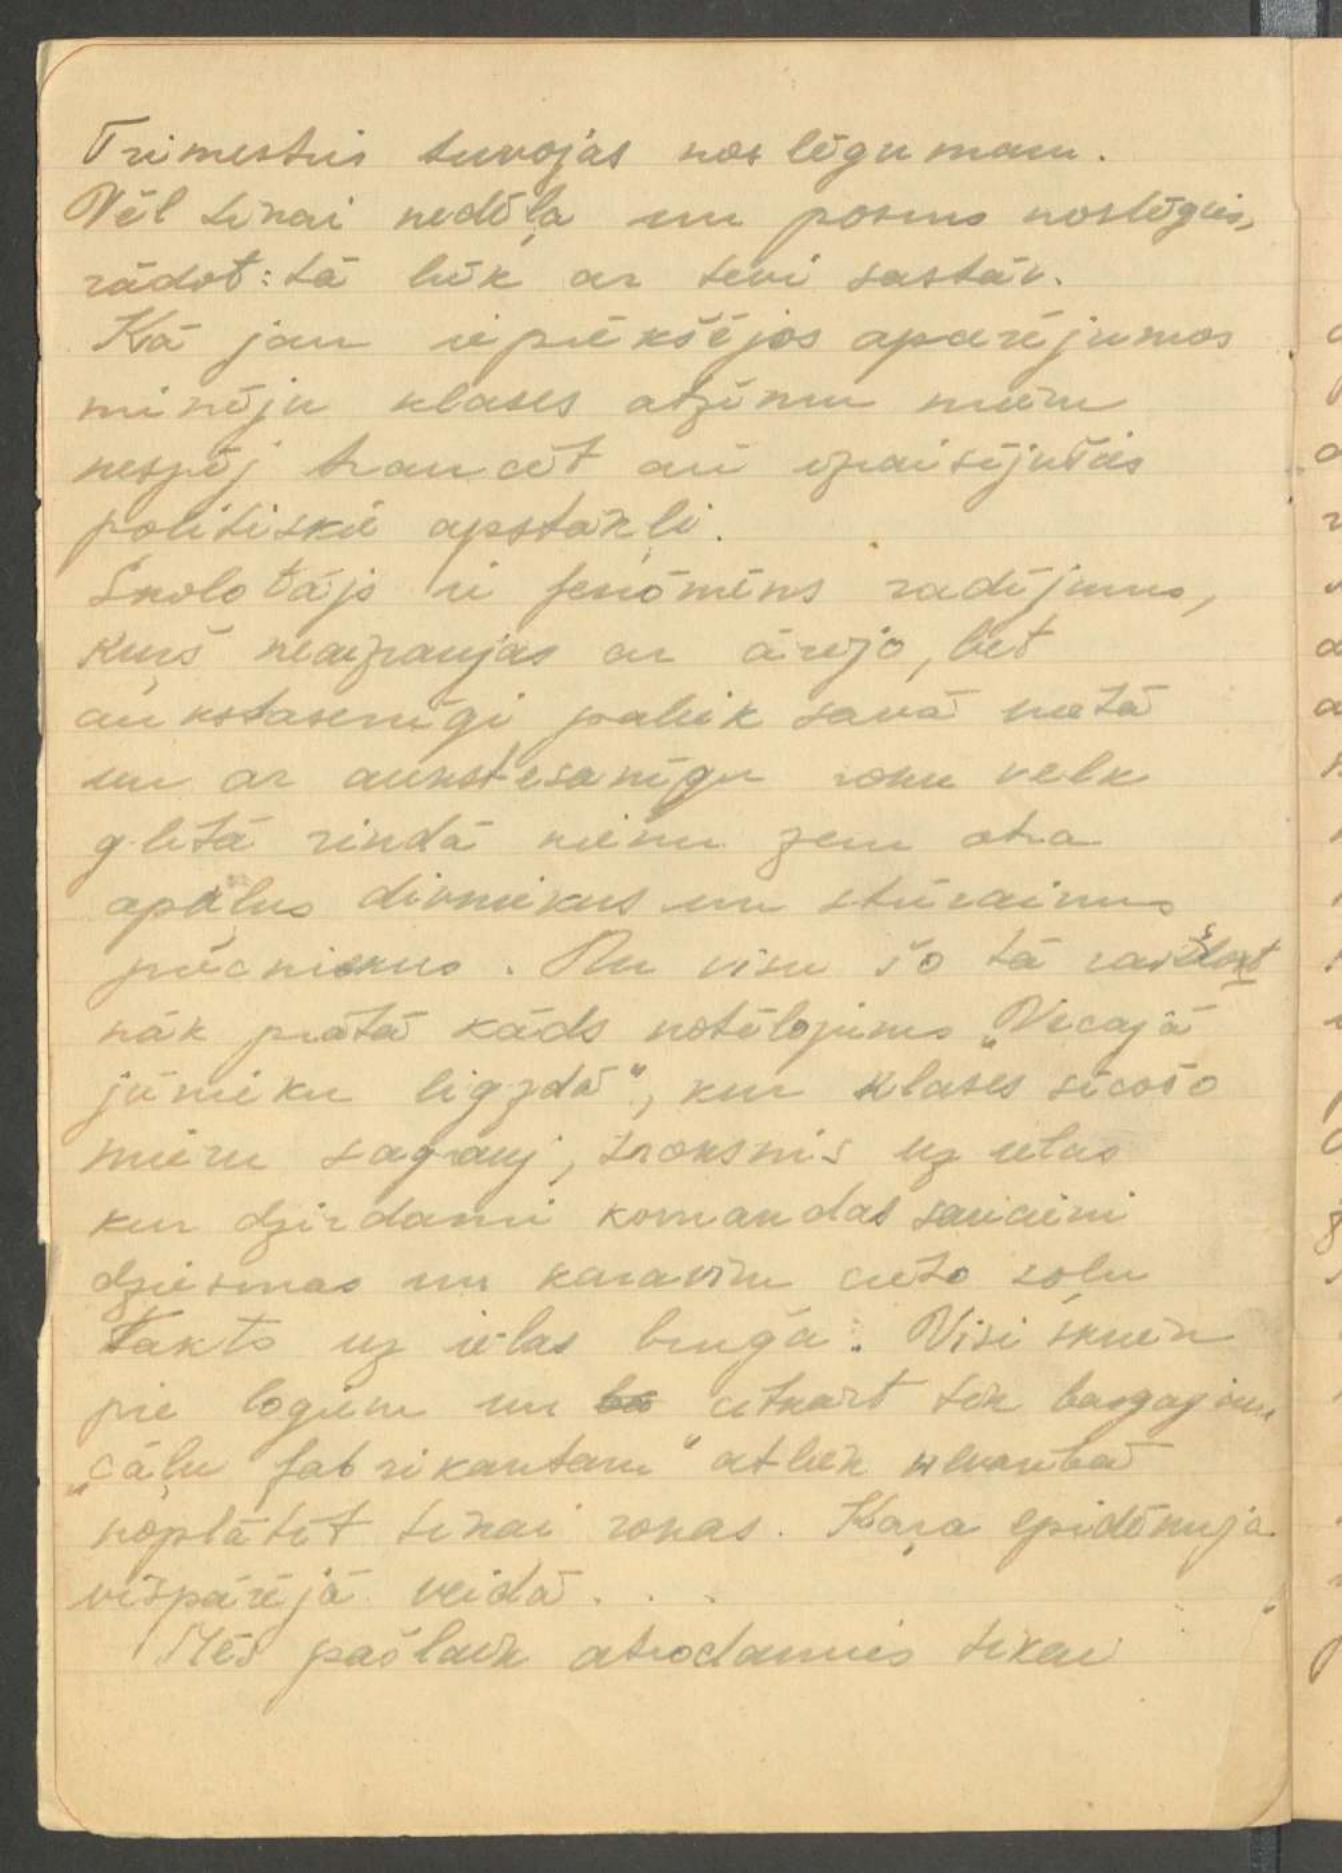 Trimestris tuvojas noslēgumam.
Vēl tikai nedēļa un posms noslēgsies,
rādot: tā lūk ar tevi sastāv.
Kā jau iepriekšējos aparējumos
minēju klases atzīmu mieru
nespēj traucēt arī izraisījušies
politiskie apstākļi.
Skolotājs ir fenōmēns radījums,
kurš neaizraujas ar ārējo, bet
aukstasinīgi paliek savā vietā
un ar aukstasinīgu roku velk
glītā rindā vienu zem otra
apaļus divniekus un stūrainus
piecniekus. Nu visu šo tā
nāk prātā kāds notēlojums „Vecajā
jūrnieku ligzdā", kur klases sīcošo
mieru sagrauj, troksnis uz ielas
kur dzirdami komandas saucieni
dziesmas un karavīru cieto soļu
takts uz ielas bruģa. Visi skrien
pie logiem un citkārt tik bargajam
„cāļu fabrikantam" atliek
noplātīt tikai rokas. Kaŗa epidēmija
vispārējā veidā . . .
Mēs pašlaik atrodamies tikai